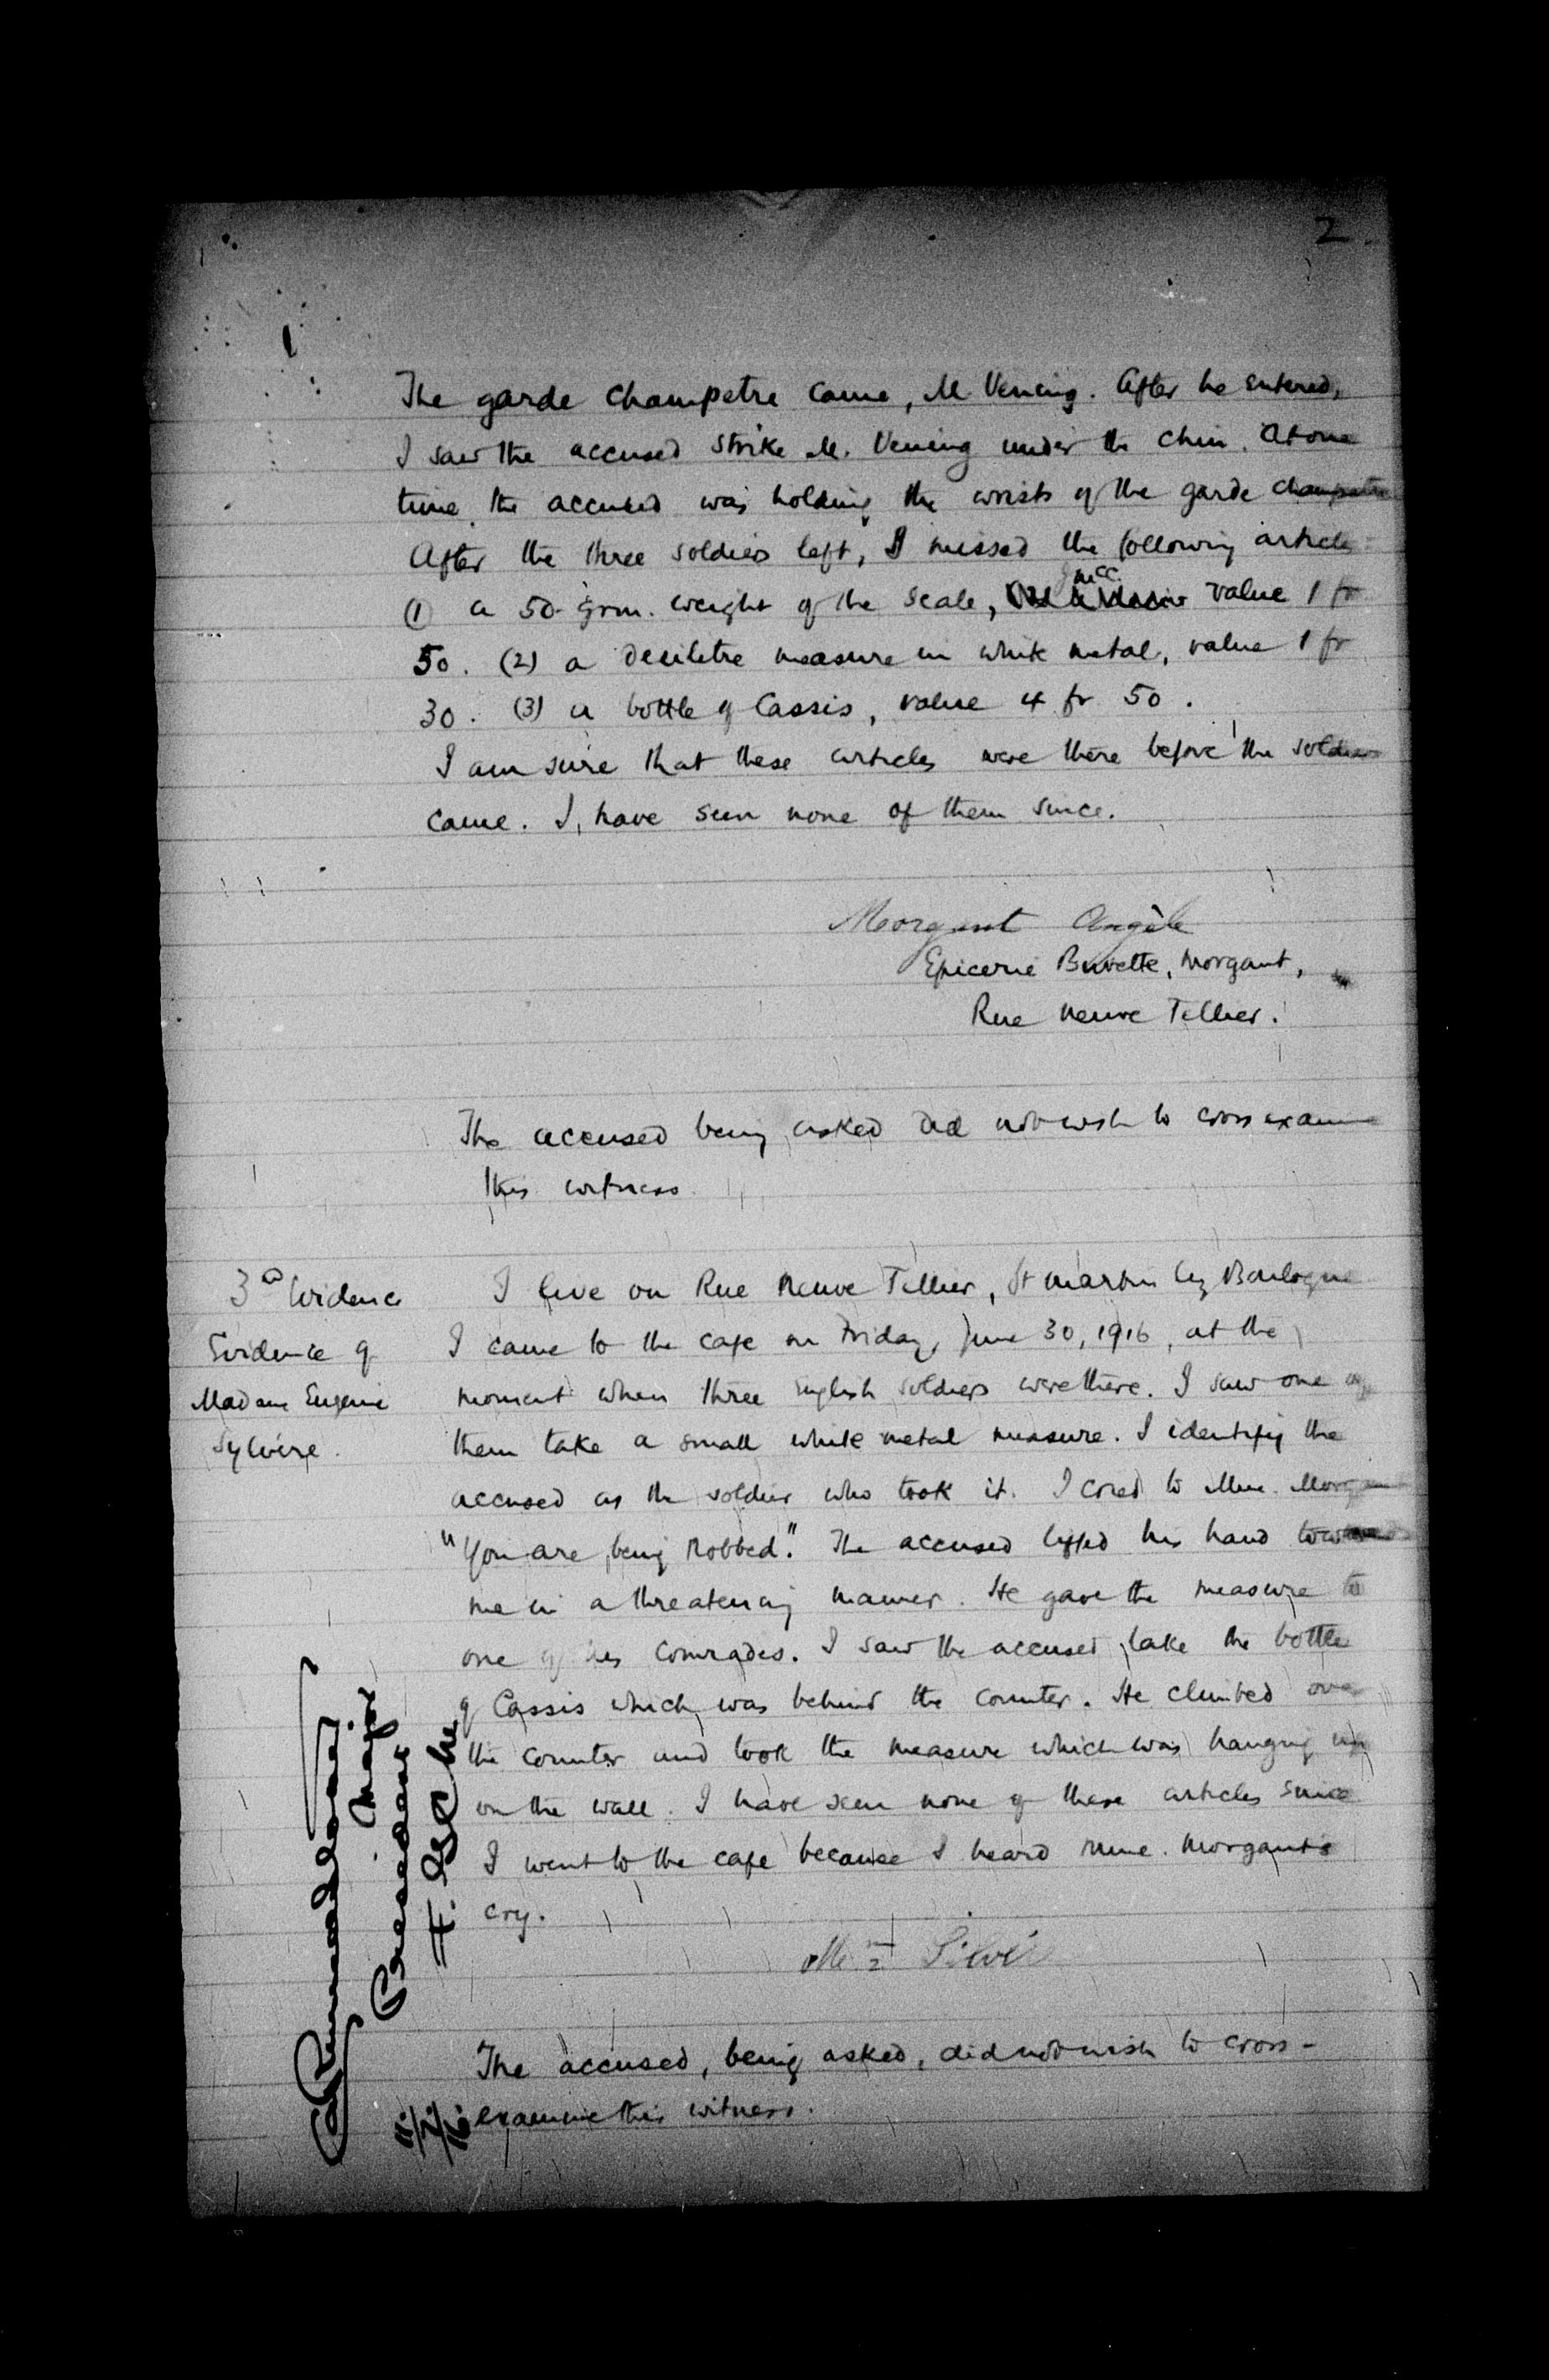 2
The garde champetre came, M. Vening. After he entered,
I saw the accused strike M. Vening under the chin. At one
time the accused was holding the wrists of the garde champetre
After the three soldiers left, I missed the following article
(1) a 50 grm. weight of the scale, value 1 fr
50. (2) a decilitre measure in white metal, value 1 fr
30. (3) a bottle of Cassis, value 4 fr 50.
I am sure that these articles were there before the soldiers
came. I have seen none of them since.
Morgant Angèle
Epicerie Buvette, Morgant,
Rue Neuve Tellier.
The accused being asked did not wish to cross exam
this witness
3rd Evidence
Evidence of
Madame Eugenie
Sylvère.
I live on Rue Neuve Tellier, St Martin lez Boulogne
I came to the cafe on Friday, June 30, 1916, at the
moment when three English soldiers were there. I saw one of
them take a small white metal measure. I identify the
accused as the soldier who took it. I cried to Mme. Morgant
"You are being robbed." The accused lifted his hand towards
me in a threatening manner. He gave the measure to
one of his comrades. I saw the accused take the bottle
of Cassis which was behind the counter. He climbed over
the counter and took the measure which was hanging up
on the wall. I have seen none of these articles since
I went to the cafe because I heard Mme. Morgant's
cry.
Me
The accused, being asked, did not wish to cross-
examine this witness.
Major
President
F.G.C.M.
11/7/16.